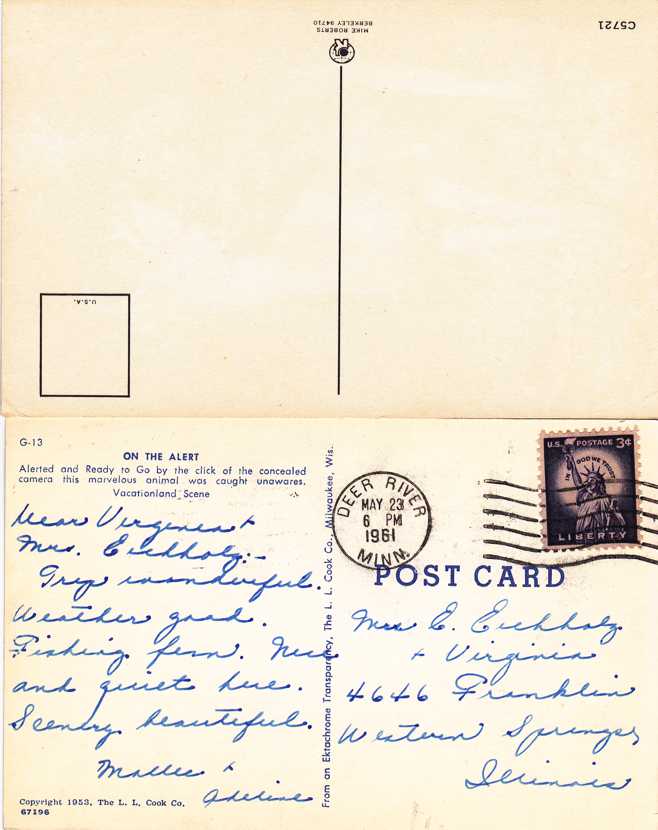 C5721
MIKE ROBERTS
BERKELEY 94710
U.S.A.
G-13
ON THE ALERT
Alerted and Ready to Go by the click of the concealed
camera this marvelous animal was caught unawares.
Vacationland Scene
Dear Virginia +
Mrs. Eichholz:-
Trip wonderful.
Weather good.
Fishing fern. Nice
and quiet here.
Scenery beautiful.
Mallee +
Adeline
Copyright 1953, The L. L. Cook Co.
67196
From an Ektachrome Transparency, The L. L. Cook Co., Milwaukee, Wis.
DEER RIVER
MAY 23
6 PM
1961
MINN.
U.S. POSTAGE 3¢
IN GOD WE TRUST
LIBERTY
POST CARD
Mrs E. Eichholz
+ Virginia
4646 Franklin
Western Springs,
Illinois